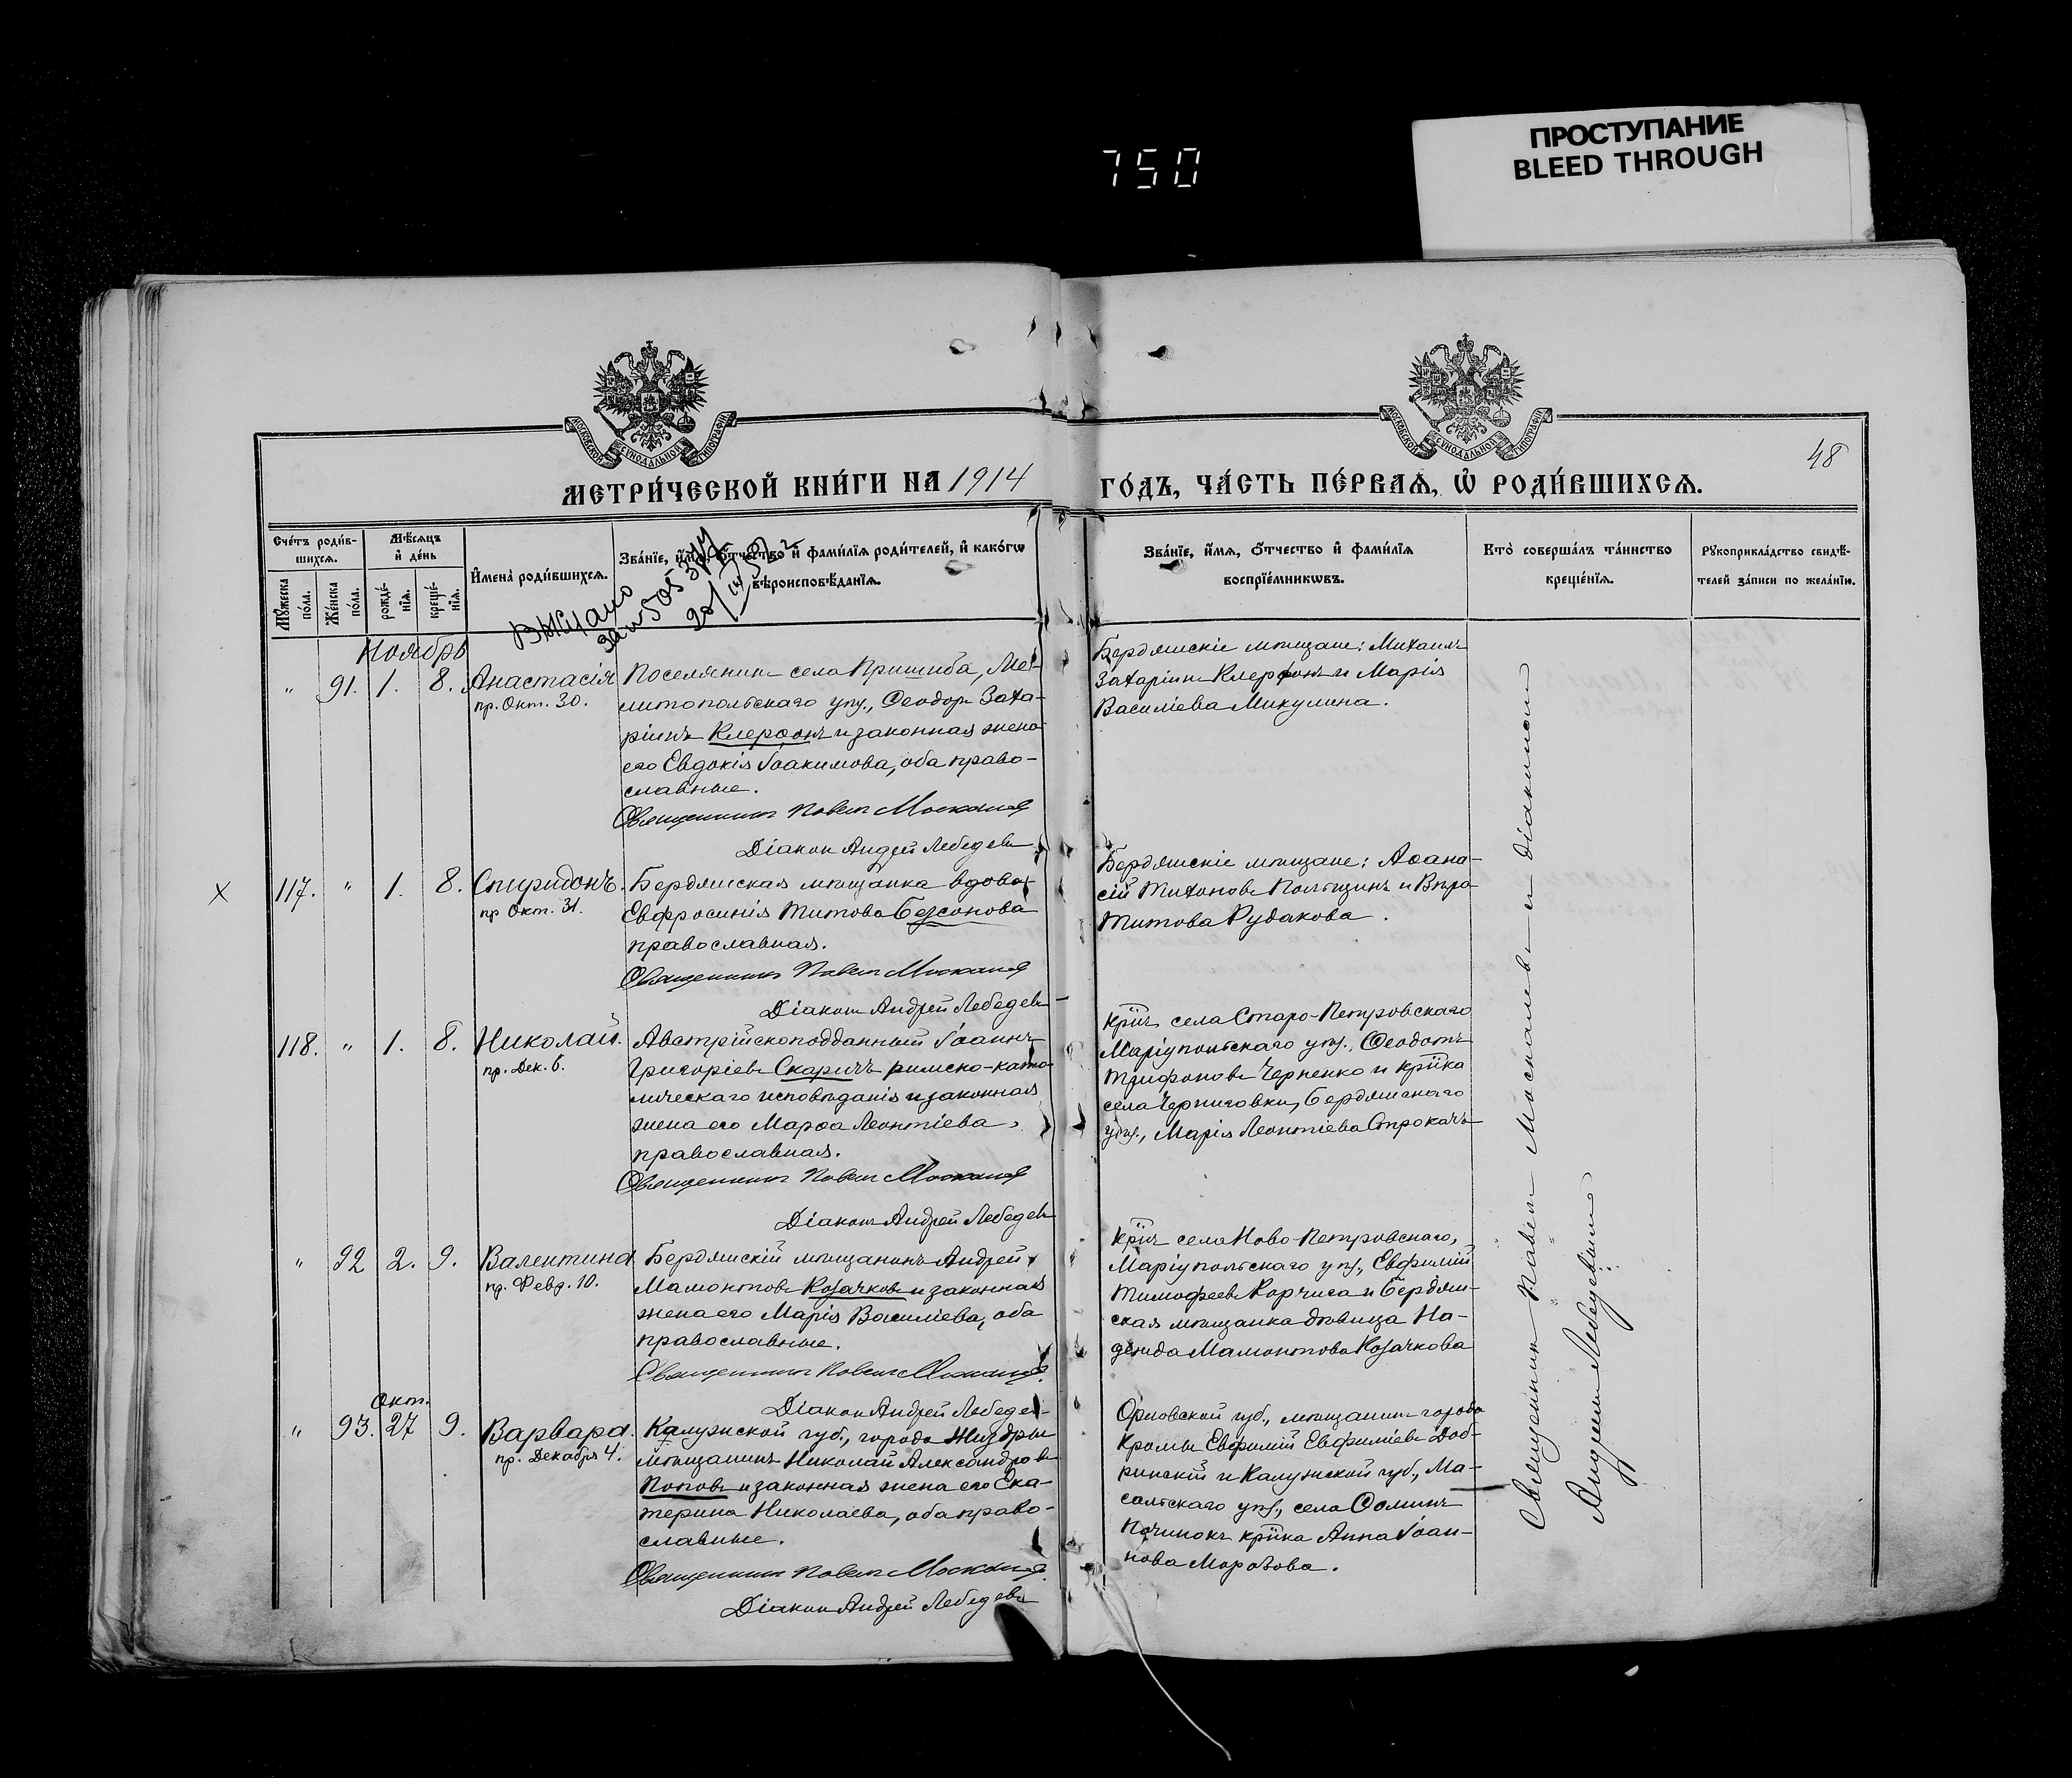 ПРОСТУПАНИЕ
BLEED THROUGH
750
МОСКОВСКОЙ СѴНОДАЛЬНОЙ ТИПОГРАФІИ
МОСКОВСКОЙ СѴНОДАЛЬНОЙ ТИПОГРАФІИ
48
МЕТРИ́ЧЕСКОЙ КНИ́ГИ НА 1914 ГО́ДЪ, ЧА́СТЬ ПЕ́РВАЯ, Ѡ҆ РОДИ́ВШИХСЯ.
Сче́тъ роди́в-
шихся.
Му́жеска по́ла.
Же́нска по́ла.
Мѣ́сяцъ
и҆ де́нь
рожде́-
нїя.
креще́-
нїя.
И҆мена̀ роди́вшихся.
Зва́нїе, и҆́мя, ѻ҆́тчество и҆ фами́лїя роди́телей, и҆ како́гѡ
вѣроисповѣ́данїя.
Зва́нїе, и҆́мя, ѻ҆́тчество и҆ фами́лїя
воспрїе́мникѡвъ.
Кто̀ соверша́лъ та́инство
креще́нїя.
Рукоприкла́дство свидѣ́-
телей за́писи по жела́нїю.
Ноябрь
" 91. 1. 8. Анастасія
пр. Окт. 30.
Поселянинъ села Пришиба, Ме-
литопольскаго уѣз., Ѳеодоръ Заха-
ріинъ Клерфонъ и законная жена
его Евдокія Іоакимова, оба право-
славные.
Священникъ Павелъ Москалевъ
Діаконъ Андрей Лебедевъ
Бердянскіе мѣщане: Михаилъ
Захаріинъ Клерфонъ и Марія
Василіева Микулина.
х 117. " 1. 8. Спиридонъ.
пр. Окт. 31.
Бердянская мѣщанка вдова
Евфросинія Титова Безсонова
православная.
Священникъ Павелъ Москалевъ
Діаконъ Андрей Лебедевъ
Бердянскіе мѣщане: Аѳана-
сій Тихоновъ и Вѣра
Титова Рудакова.
118. " 1. 8. Николай.
пр. Дек. 6.
Австрійскоподданный Іоаннъ
Григоріевъ Скаричъ римско-като-
лическаго исповѣданія и законная
жена его Марѳа Леонтіева,
православная.
Священникъ Павелъ Москалевъ
Діаконъ Андрей Лебедевъ
Кр̃инъ села Старо-Петровскаго
Маріупольскаго уѣз., Ѳеодотъ
Трифоновъ Черненко и кр̃нка
села Черниговки, Бердянскаго
уѣз., Марія Леонтіева Строкачъ
" 92 2. 9. Валентина
пр. Февр. 10.
Бердянскій мѣщанинъ Андрей
Мамонтовъ Козачковъ и законная
жена его Марія Василіева, оба
православные.
Священникъ Павелъ Москалевъ
Діаконъ Андрей Лебедевъ
Кр̃инъ села Ново-Петровскаго,
Маріупольскаго уѣз., Евфимій
Тимофеевъ Корчиса и Бердян-
ская мѣщанка дѣвица На-
дежда Мамонтова Козачкова
Окт.
" 93. 27 9. Варвара.
пр. Декабря 4.
Калужской губ., города Жиздры
мѣщанинъ Николай Александровъ
Поповъ и законная жена его Ека-
терина Николаева, оба право-
славные.
Священникъ Павелъ Москалевъ
Діаконъ Андрей Лебедевъ
Орловской губ., мѣщанинъ города
Кромы Евфимій Евфиміевъ Доб-
рынскій и Калужской губ., Ма-
сальскаго уѣз., села Ѳоминъ
Починокъ кр̃нка Анна Іоан-
нова Морозова.
Священникъ Павелъ Москалевъ и діакономъ
Андреемъ Лебедевымъ